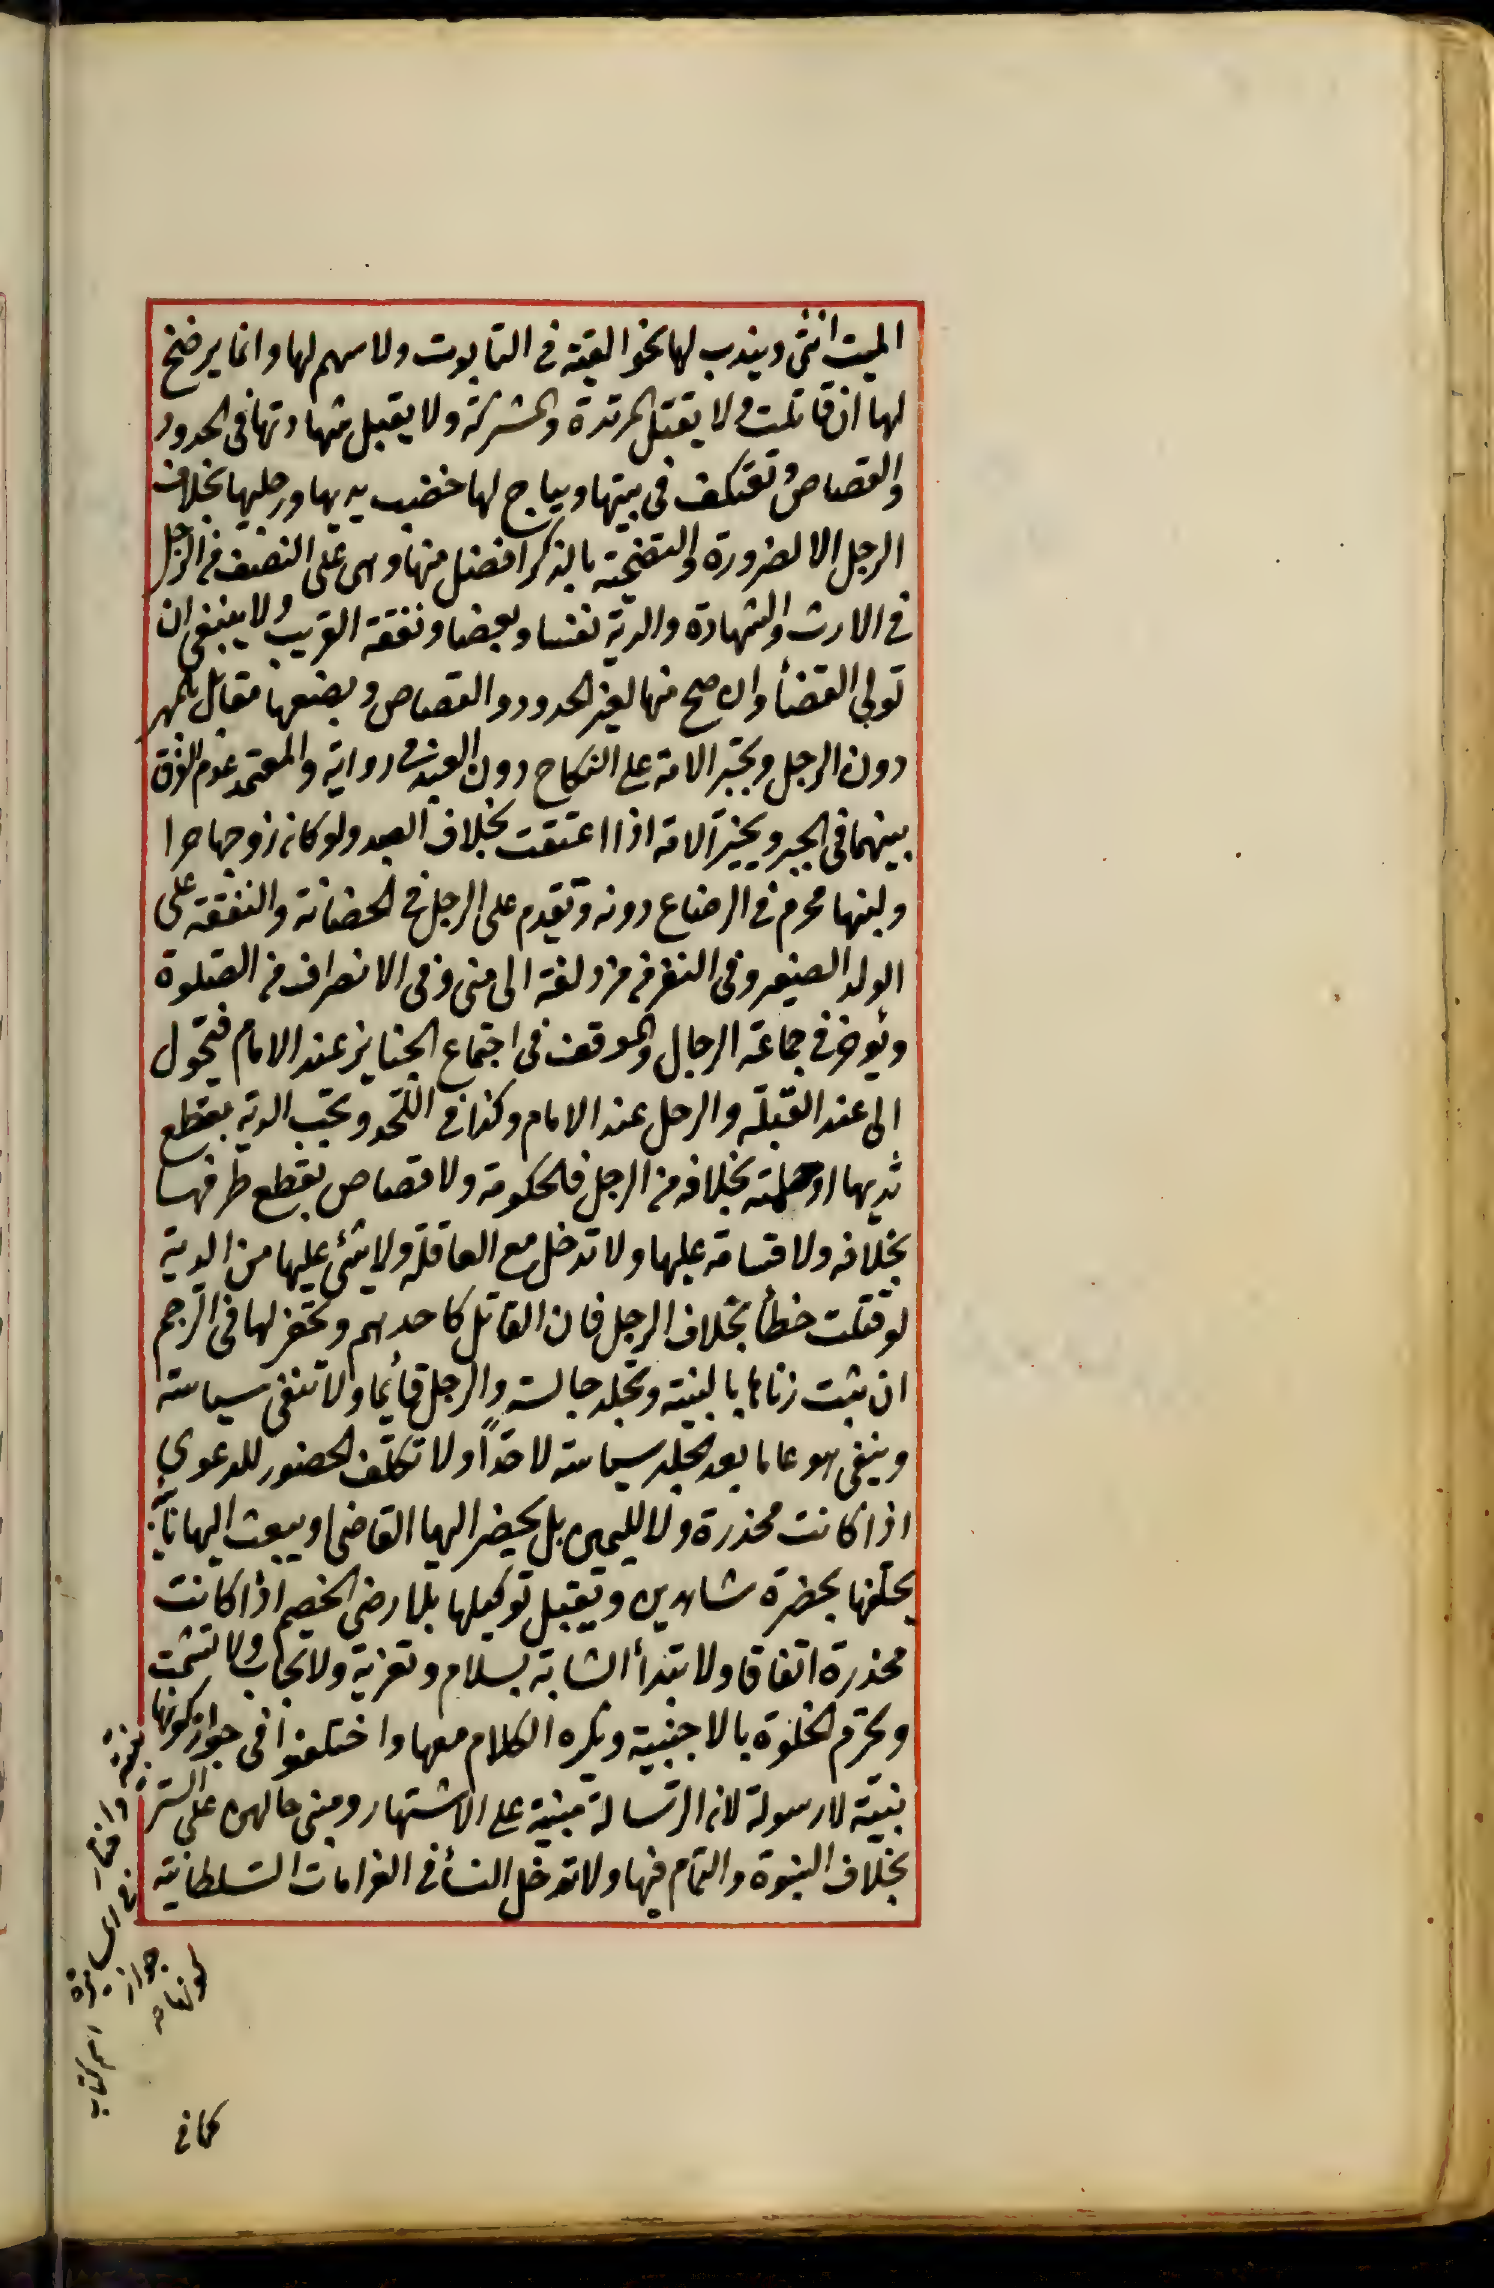 الميت انثى ويندب لها نحو القبة في التابوت ولا سهم لها وانما يرضخ
لها ان قاتلت ولا يقتل المرتدة والمشركة ولا يقبل شهادتها في الحدود
والقصاص وتعتكف في بيتها ويباح لها خضب يديها ورجليها بخلاف
الرجل الا لضرورة والتضحية بالذكر افضل منها وهى على النصف من الرجل
في الارث والشهادة والدية نفسا وبعضا ونفقة القريب ولا ينبغي ان
تولي القضأ وان صح منها لغير الحدود والقصاص وبضعها مقابل بالمهر
دون الرجل وتجبر الامة على النكاح دون العبد في رواية والمعتمد عدم الفرق
بينهما في الجبر ويخير الامة اذا اعتقت بخلاف العبد ولو كان زوجها حرا
ولبنها محرم في الرضاع دونه وتقدم على الرجل في الحضانة والنفقة على
الولد الصغير وفي النفر من مزدلفة الى منى وفي الانصراف من الصلوة
ويؤخر في جماعة الرجال والموقف في اجتماع الجنايز عند الامام فتحول
الى عند القبلة والرجل عند الامام وكذا في اللحد وتجب الدية بقطع
ثديها او حلمته بخلافه من الرجل فالحكومة ولا قصاص بقطع طرفها
بخلافه ولا قسامة عليها ولا تدخل مع العاقلة ولا شئى عليها من الدية
لو قتلت خطأ بخلاف الرجل فان القاتل كاحدهم وتحفر لها في الرجم
ان ثبت زناها بالبينة وتجلد جالسة والرجل قائما ولا تنفى سياسة
وينفى هو عاما بعد الجلد سياسة لا حدا ولا تكلف الحضور للدعوى
اذا كانت مخدرة ولا لليمين بل يحضر اليها القاضى او يبعث اليها نائبه
يحلفها بحضرة شاهدين وتقبل توكيلها بلا رضى الخصم اذا كانت
مخدرة اتفاقا ولا تبتدأ الشابة بسلام وتعزية ولا تجاب ولا تشمت
ويحرم الخلوة بالاجنبية ويكره الكلام معها واختلفوا في جواز كونها
نبية لا رسولة لان الرسالة مبنية على الاشتهار ومبنى حالهن على الستر
بخلاف النبوة والتمام فيها ولا تدخل النسأ في الغرامات السلطانية
نبية واختار
في المسايرة
جواز
كونها
اسم كتاب
كما في